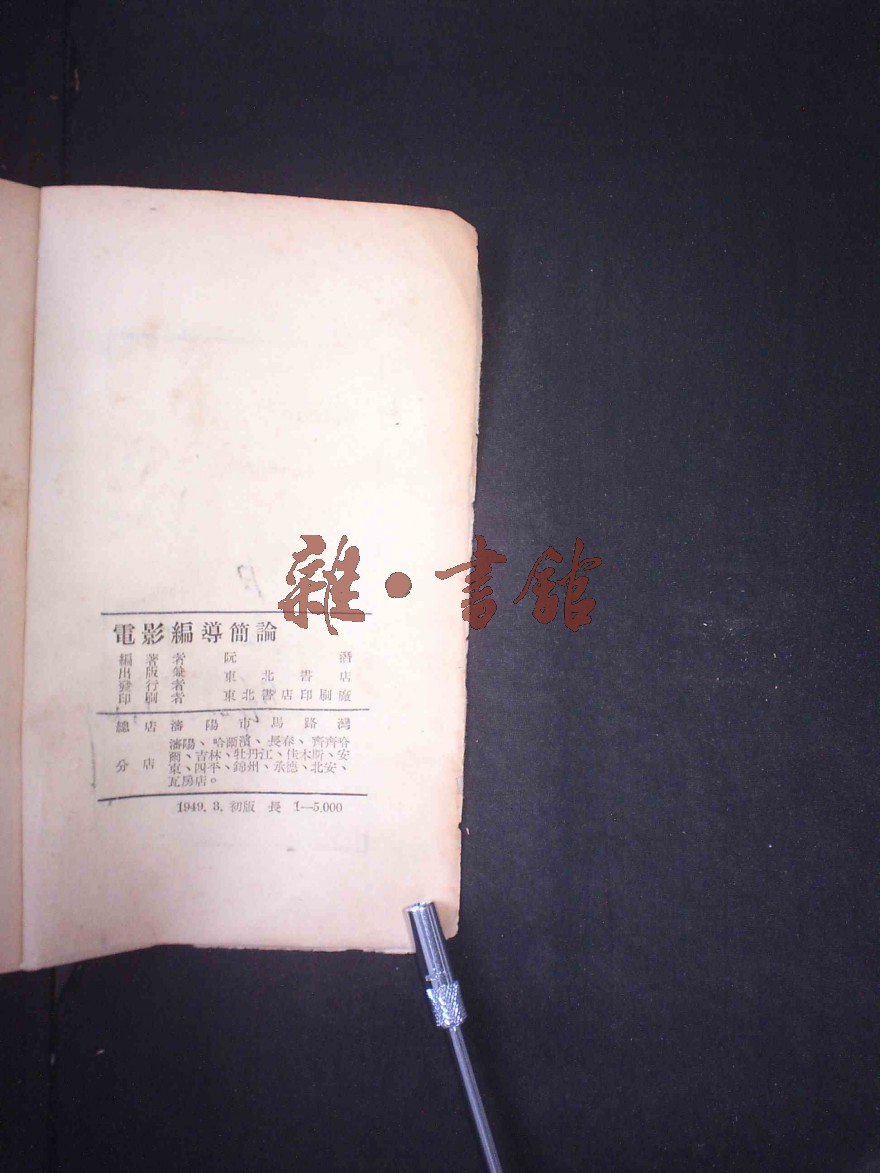 雜·書館
電影編導簡論
編著者 阮潛
出版兼
發行者 東北書店
印刷者 東北書店印刷廠
總店 瀋陽市馬路灣
分店 瀋陽、哈爾濱、長春、齊齊哈
爾、吉林、牡丹江、佳木斯、安
東、四平、錦州、承德、北安、
瓦房店。
1949. 3. 初版 長 1—5,000